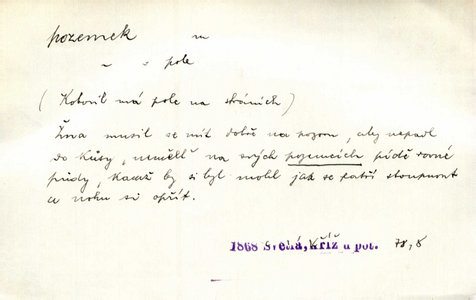 pozemek m
~ ~ pole
(Kotovil má pole na stráních)
Žena musil se mít dobře na pozoru, aby nepadl
do kůsy, neměltˇ na svých pozemcích pídě rovné
půdy, kamž by si byl mohl jak se patří stoupnout
a nohu si opřít.
1868 Světlá, Kříž u pot. 78,8